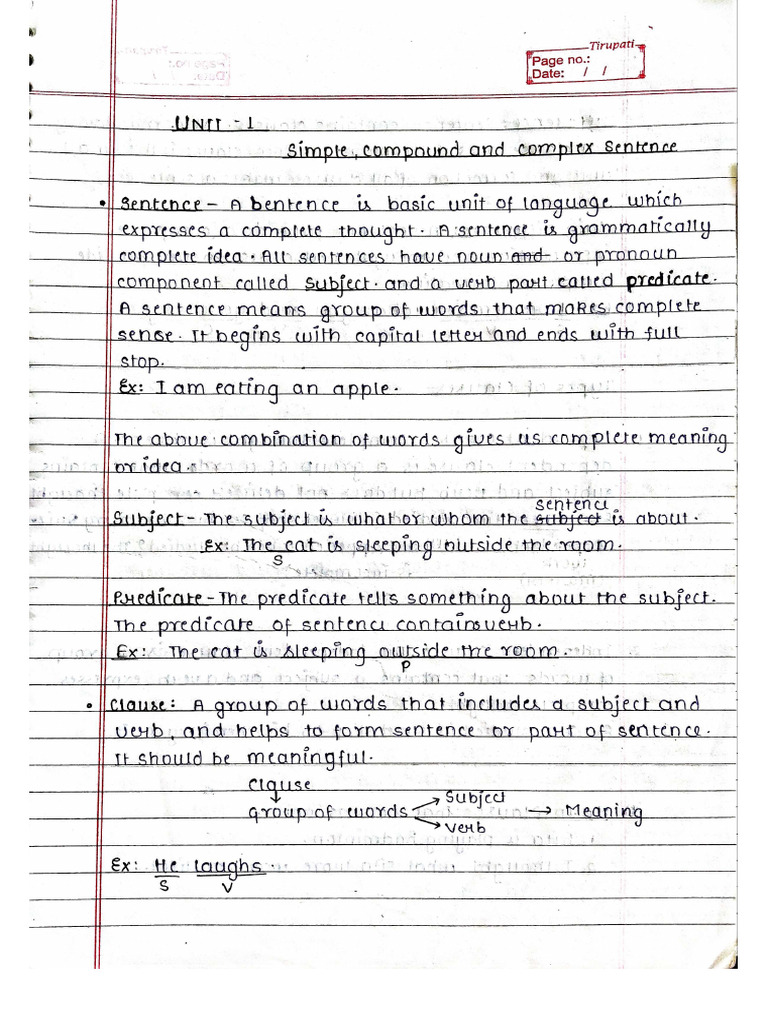 Tirupati
Page no.:
Date: / /
UNIT - 1
Simple, compound and complex Sentence
• Sentence - A sentence is basic unit of language which
expresses a complete thought. A sentence is grammatically
complete idea. All sentences have noun and or pronoun
component called subject. and a verb part called predicate.
A sentence means group of words that makes complete
sense. It begins with capital letter and ends with full
stop.
Ex: I am eating an apple.
The above combination of words gives us complete meaning
or idea.
sentence
Subject - The subject is what or whom the subject is about.
Ex: The cat is sleeping outside the room.
S
Predicate - The predicate tells something about the subject.
The predicate of sentence contains verb.
Ex: The cat is sleeping outside the room.
P
• Clause: A group of words that includes a subject and
verb, and helps to form sentence or part of sentence.
It should be meaningful.
Clause
↓
group of words → Subject → Meaning
→ Verb
Ex: He laughs
S V